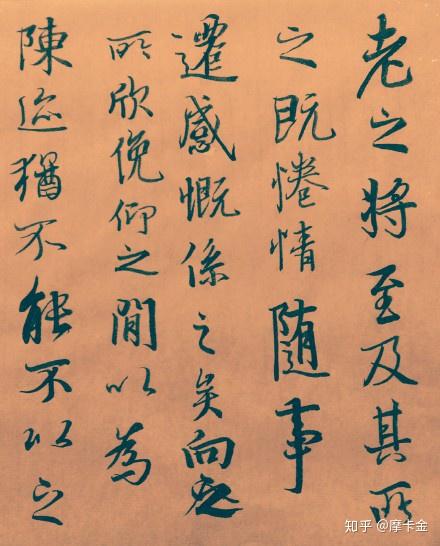 老之将至及其所
之既惓情随事
遷感慨係之矣向之
所欣俛仰之閒以為
陳迹猶不能不以之
知乎 @摩卡金